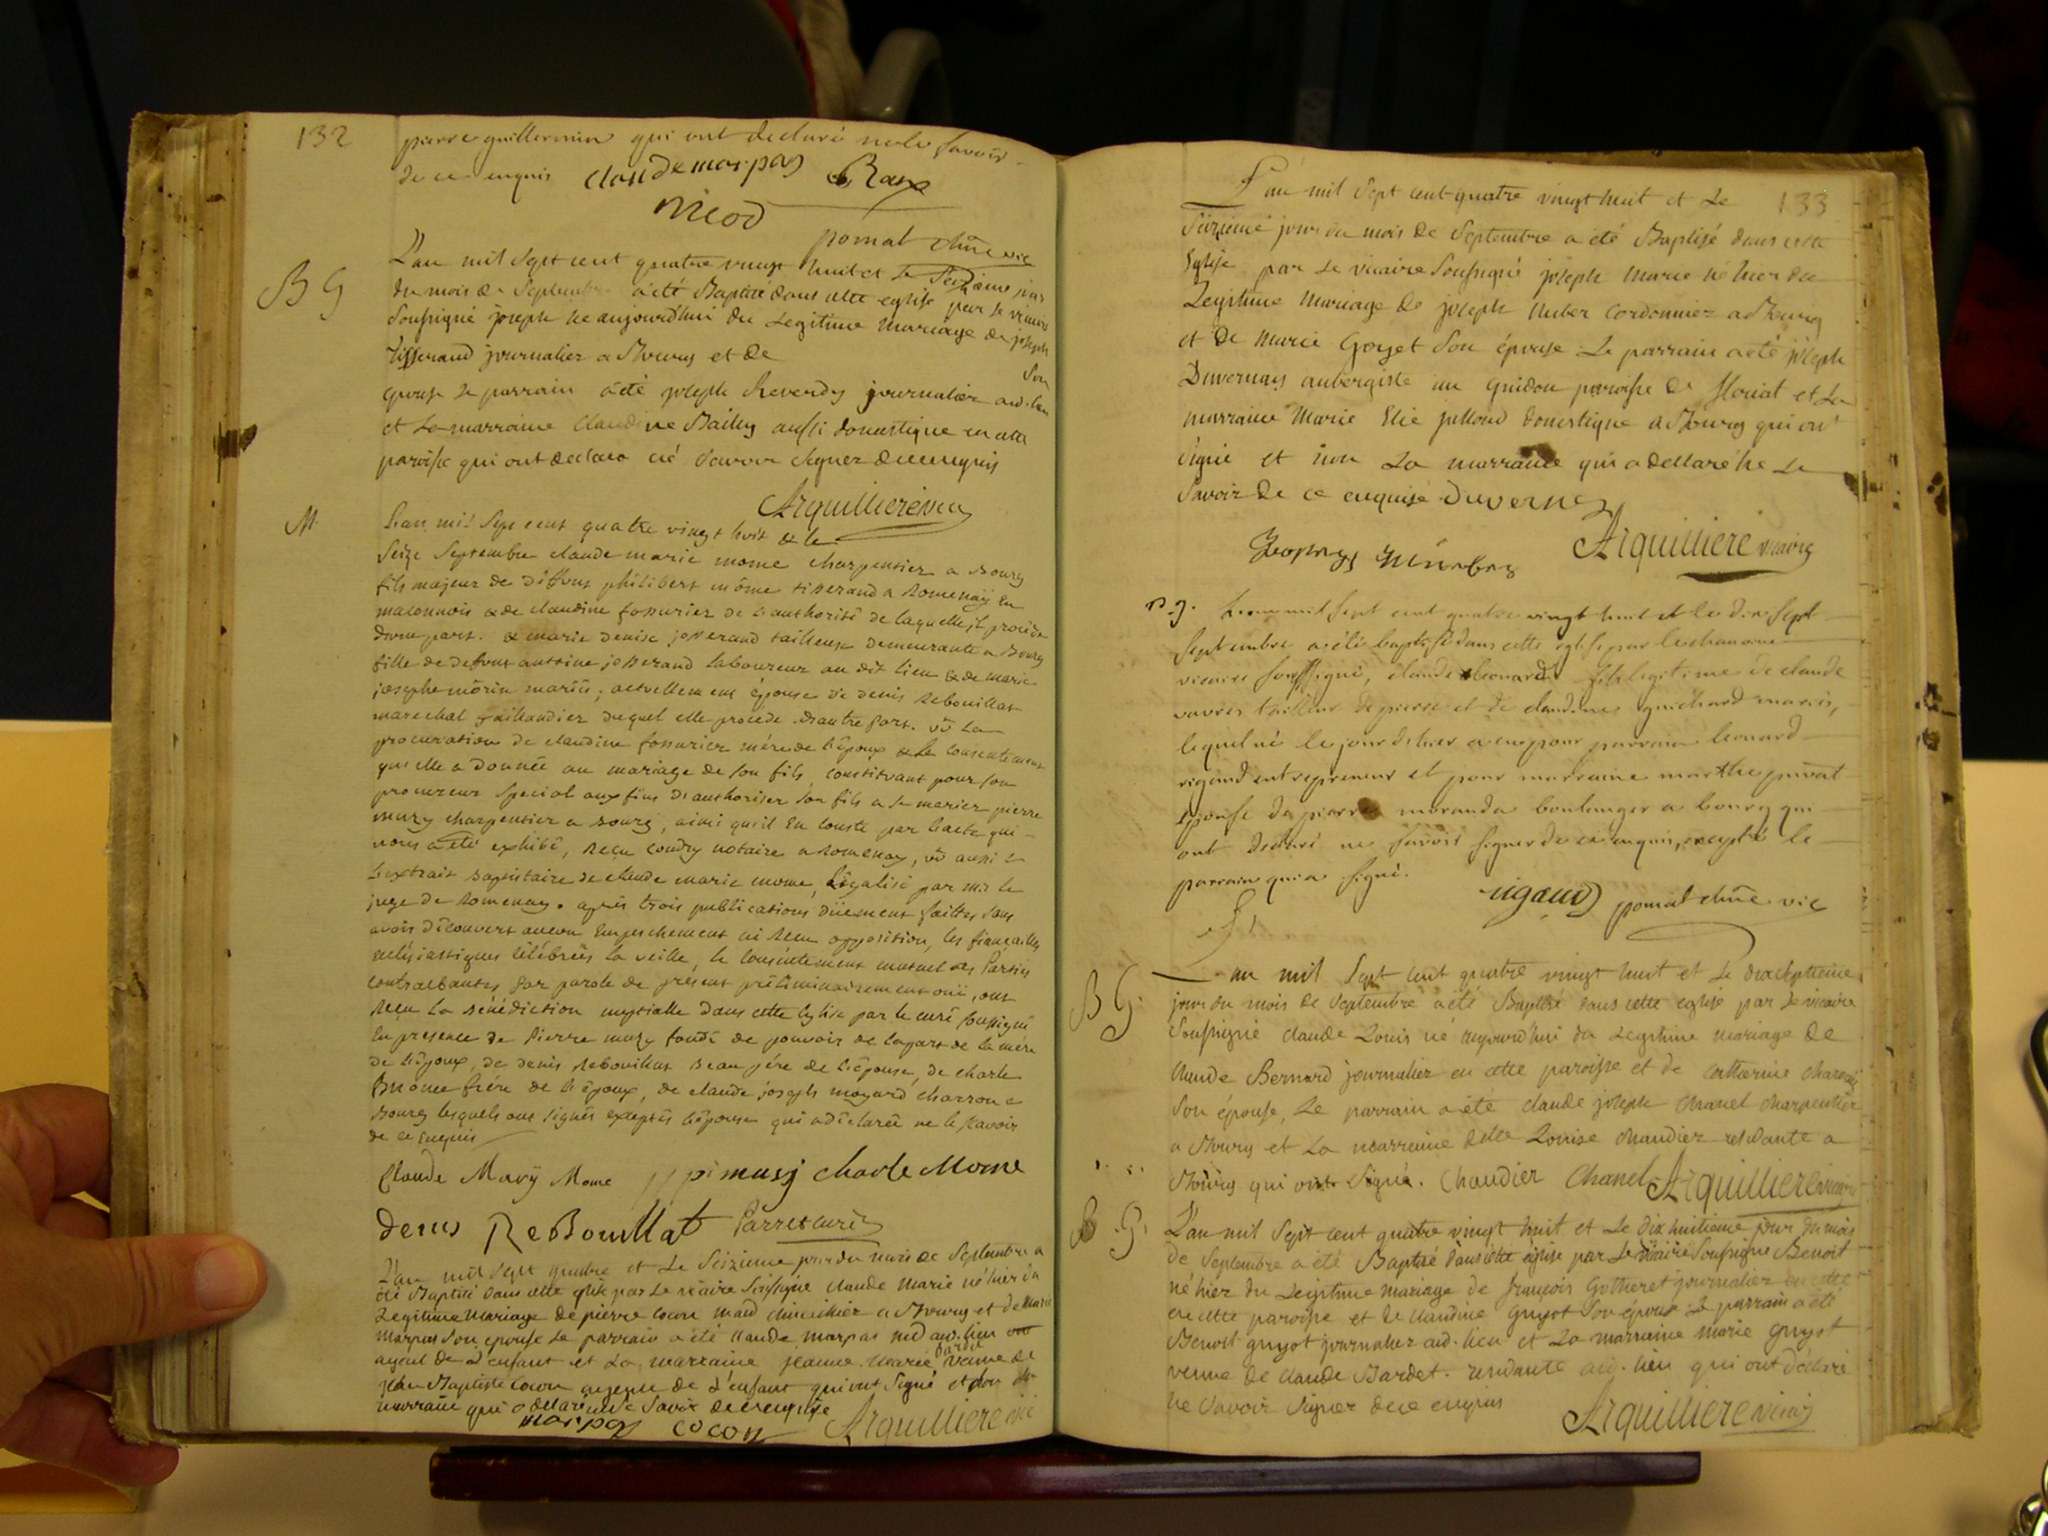 132
pierre guillermin qui ont declaré ne le savoir
de ce enquis claude marpas Roux
Nicod
pomat chne vic
B G
L'an mil sept cent quatre vingt huit et le seizieme jour
du mois de Septembre a été Baptisé dans cette eglise par le vicaire
Soussigné joseph né aujourd'hui du Legitime mariage de joseph
tisserand journalier a Bourg et de
son
epouse Le parrain a été joseph Reverdy journalier aud. lieu
et La marraine Claudine Bailly aussi domestique en cette
paroisse qui ont declaré ne savoir signer de ce enquis
Arquilliere vic
M.
L'an mil sept cent quatre vingt huit & le
seize septembre claude marie mome charpentier a Bourg
fils majeur de deffunt philibert mome tisserand a Romenaÿ en
maconnois & de claudine fossurier de l'authorité de laquelle il procède
d'une part. & marie denise josserand tailleuse demeurante a Bourg
fille de deffunt antoine josserand laboureur au dit lieu & de marie
josephe morin mariés, actuellement épouse de denis Rebouillat
marechal taillandier duquel elle procede d'autre part. vû la
procuration de claudine fossurier mère de l'époux & le consentement
qu'elle a donnée au mariage de son fils, constituant pour son
procureur special aux fins d'authoriser son fils a se marier pierre
musy charpentier a Bourg, ainsi qu'il en conste par l'acte qui
nous a été exhibé, reçu coudry notaire a Romenay, vû aussi
l'extrait baptistaire de claude marie mome, légalisé par mr le
juge de Romenay. après trois publications düement faittes sans
avoir découvert aucun empeschement ni reçu opposition, les fiançailles
ecclésiastiques célébrées la veille, le consentement mutuel des parties
contractantes par parole de présent préliminairement ouï, ont
reçu la bénédiction nuptialle dans cette église par le curé soussigné
en presence de pierre musy fondé de pouvoir de la part de la mère
de l'époux, de denis Rebouillat beau père de l'épouse, de charle
mome frère de l'époux, de claude joseph moyard charron a
Bourg lesquels ont signés exceptés l'épouse qui a déclarée ne le scavoir
de ce enquis
Claude Mary Mome pi musy charle Mome
denis ReBouillat Parret curé
L'an mil sept quatre et Le Seizieme jour du mois de Septembre a
été Baptisé dans cette eglise par Le vicaire Soussigné claude Marie né hier du
Legitime Mariage de pierre cocon a Bourg et de Marie
Marpas son epouse Le parrain a été claude marpas aud. lieu
ayeul de L'enfant et La marraine jeanne Marie veuve de
jean Baptiste Cocon ayeule de L'enfant qui ont signé et non
marraine qui a declaré ne le savoir de ce enquise
marpas cocon Arquilliere vic
133
L'an mil Sept cent quatre vingt huit et Le
Seizieme jour du mois de Septembre a été Baptisé dans cette
Eglise par Le vicaire Soussigné joseph marie né hier du
Legitime Mariage de joseph Cordonnier a Bourg
et de Marie Goyet Son épouse Le parrain a été joseph
Duvernay aubergiste au guidon paroisse de fleuriat et La
marraine Marie domestique a Bourg qui ont
signé et non La marraine qui a declaré ne Le
Savoir de ce enquise Duvernay
Arquilliere vicaire
B. g. L'an mil Sept cent quatre vingt huit et le dix Sept
Septembre a été baptisé dans cette eglise par le chanoine
vicaire soussigné, claude leonard fils legitime de claude
tailleur de pierre et de claudine guichard mariés,
lequel né le jour d'hier a eu pour parrain leonard
rigaud entrepreneur et pour marraine marthe
epouse de pierre boulanger a bourg qui
ont declaré ne savoir signer de ce enquis, excepté le
parrain qui a signé.
rigaud pomat chne vic
B G.
L'an mil Sept cent quatre vingt huit et Le dixseptieme
jour du mois de Septembre a été Baptisé dans cette eglise par Le vicaire
Soussigné claude Louis né aujourd'hui du Legitime mariage de
claude Bernard journalier en cette paroisse et de catherine
Son épouse, Le parrain a été claude joseph chanel charpentier
a Bourg et La marraine delle Louise chaudier residante a
Bourg qui ont Signé. Chaudier Chanel Arquilliere vicaire
B. G.
L'an mil Sept cent quatre vingt huit et Le dix huitieme jour du mois
de Septembre a été Baptisé dans cette eglise par Le vicaire Soussigné Benoit
né hier du Legitime mariage de françois journalier
en cette paroisse et de claudine guyot Son épouse Le parrain a été
Benoit guyot journalier aud. lieu et La marraine marie guyot
veuve de claude Bardet. residante aud. lieu qui ont déclaré
ne Savoir Signer de ce enquis
Arquilliere vicaire